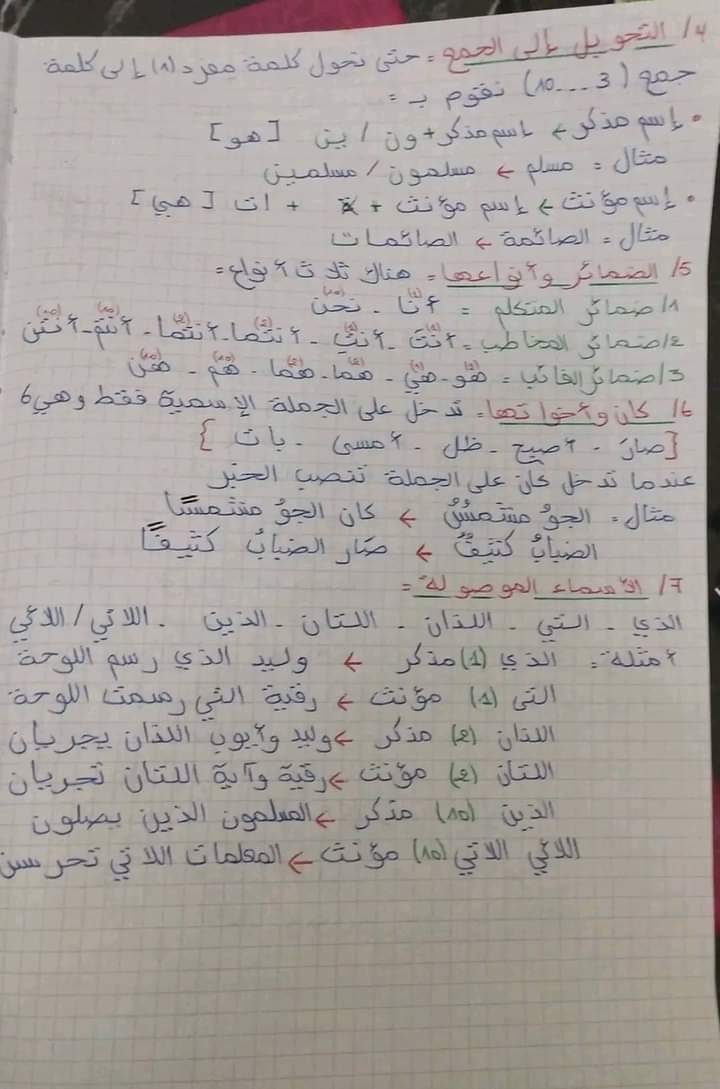 4/ التحويل إلى الجمع = حتى نحول كلمة مفرد (1) إلى كلمة
جمع (3 ... 10) نقوم بـ =
• إسم مذكر ← إسم مذكر + ون / ين [هو]
مثال = مسلم ← مسلمون / مسلمين
• إسم مؤنث ← إسم مؤنث + ة + ات [هي]
مثال = الصائمة ← الصائمات
5/ الضمائر وأنواعها = هناك ثلاث أنواع =
1/ ضمائر المتكلم = أنا (1) - نحن (10)
2/ ضمائر المخاطب = أنتَ (1) - أنتِ (1) - أنتما (2) - أنتما (2) - أنتم (10) - أنتن (10)
3/ ضمائر الغائب = هو (1) - هي (1) - هما (2) - هما (2) - هم (10) - هن (10)
6/ كان وأخواتها = تدخل على الجملة الإسمية فقط وهي 6
[صارَ - أصبح - ظل - أمسى - بات }
عندما تدخل كان على الجملة تنصب الخبر
مثال = الجوُ مشمسٌ ← كان الجوُ مشمسًا
الضبابُ كثيفٌ ← صار الضبابُ كثيفًا
7/ الأسماء الموصولة =
الذي - التي - اللذان - اللتان - الذين - اللائي / اللاتي
أمثلة = الذي (1) مذكر ← وليد الذي رسم اللوحة
التي (1) مؤنث ← رقية التي رسمت اللوحة
اللذان (2) مذكر ← وليد وأيوب اللذان يجريان
اللتان (2) مؤنث ← رقية وآية اللتان تجريان
الذين (10) مذكر ← المسلمون الذين يصلون
اللائي اللاتي (10) مؤنث ← المعلمات اللاتي